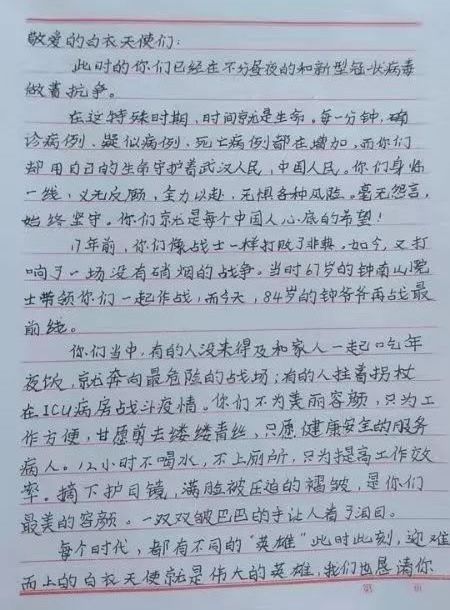 敬爱的白衣天使们：
此时的你们已经在不分昼夜的和新型冠状病毒
做着抗争。
在这特殊时期，时间就是生命。每一分钟，确
诊病例、疑似病例、死亡病例都在增加。而你们
却用自己的生命守护着武汉人民，中国人民。你们身临
一线，义无反顾，全力以赴，无惧各种风险。毫无怨言，
始终坚守。你们就是每个中国人心底的希望！
17年前，你们像战士一样打败了非典。如今，又打
响了一场没有硝烟的战争。当时67岁的钟南山院
士带领你们一起作战，而今天，84岁的钟爷爷再战最
前线。
你们当中，有的人没来得及和家人一起吃年
夜饭，就奔向最危险的战场；有的人拄着拐杖
在ICU病房战斗疫情。你们不为美丽容颜，只为工
作方便，甘愿剪去缕缕青丝，只愿健康安全的服务
病人。12小时不喝水，不上厕所，只为提高工作效
率。摘下护目镜，满脸被压迫的褶皱，是你们
最美的容颜。一双双皱巴巴的手让人看了泪目。
每个时代，都有不同的“英雄”此时此刻，迎难
而上的白衣天使就是伟大的英雄，我们也恳请你
第 页